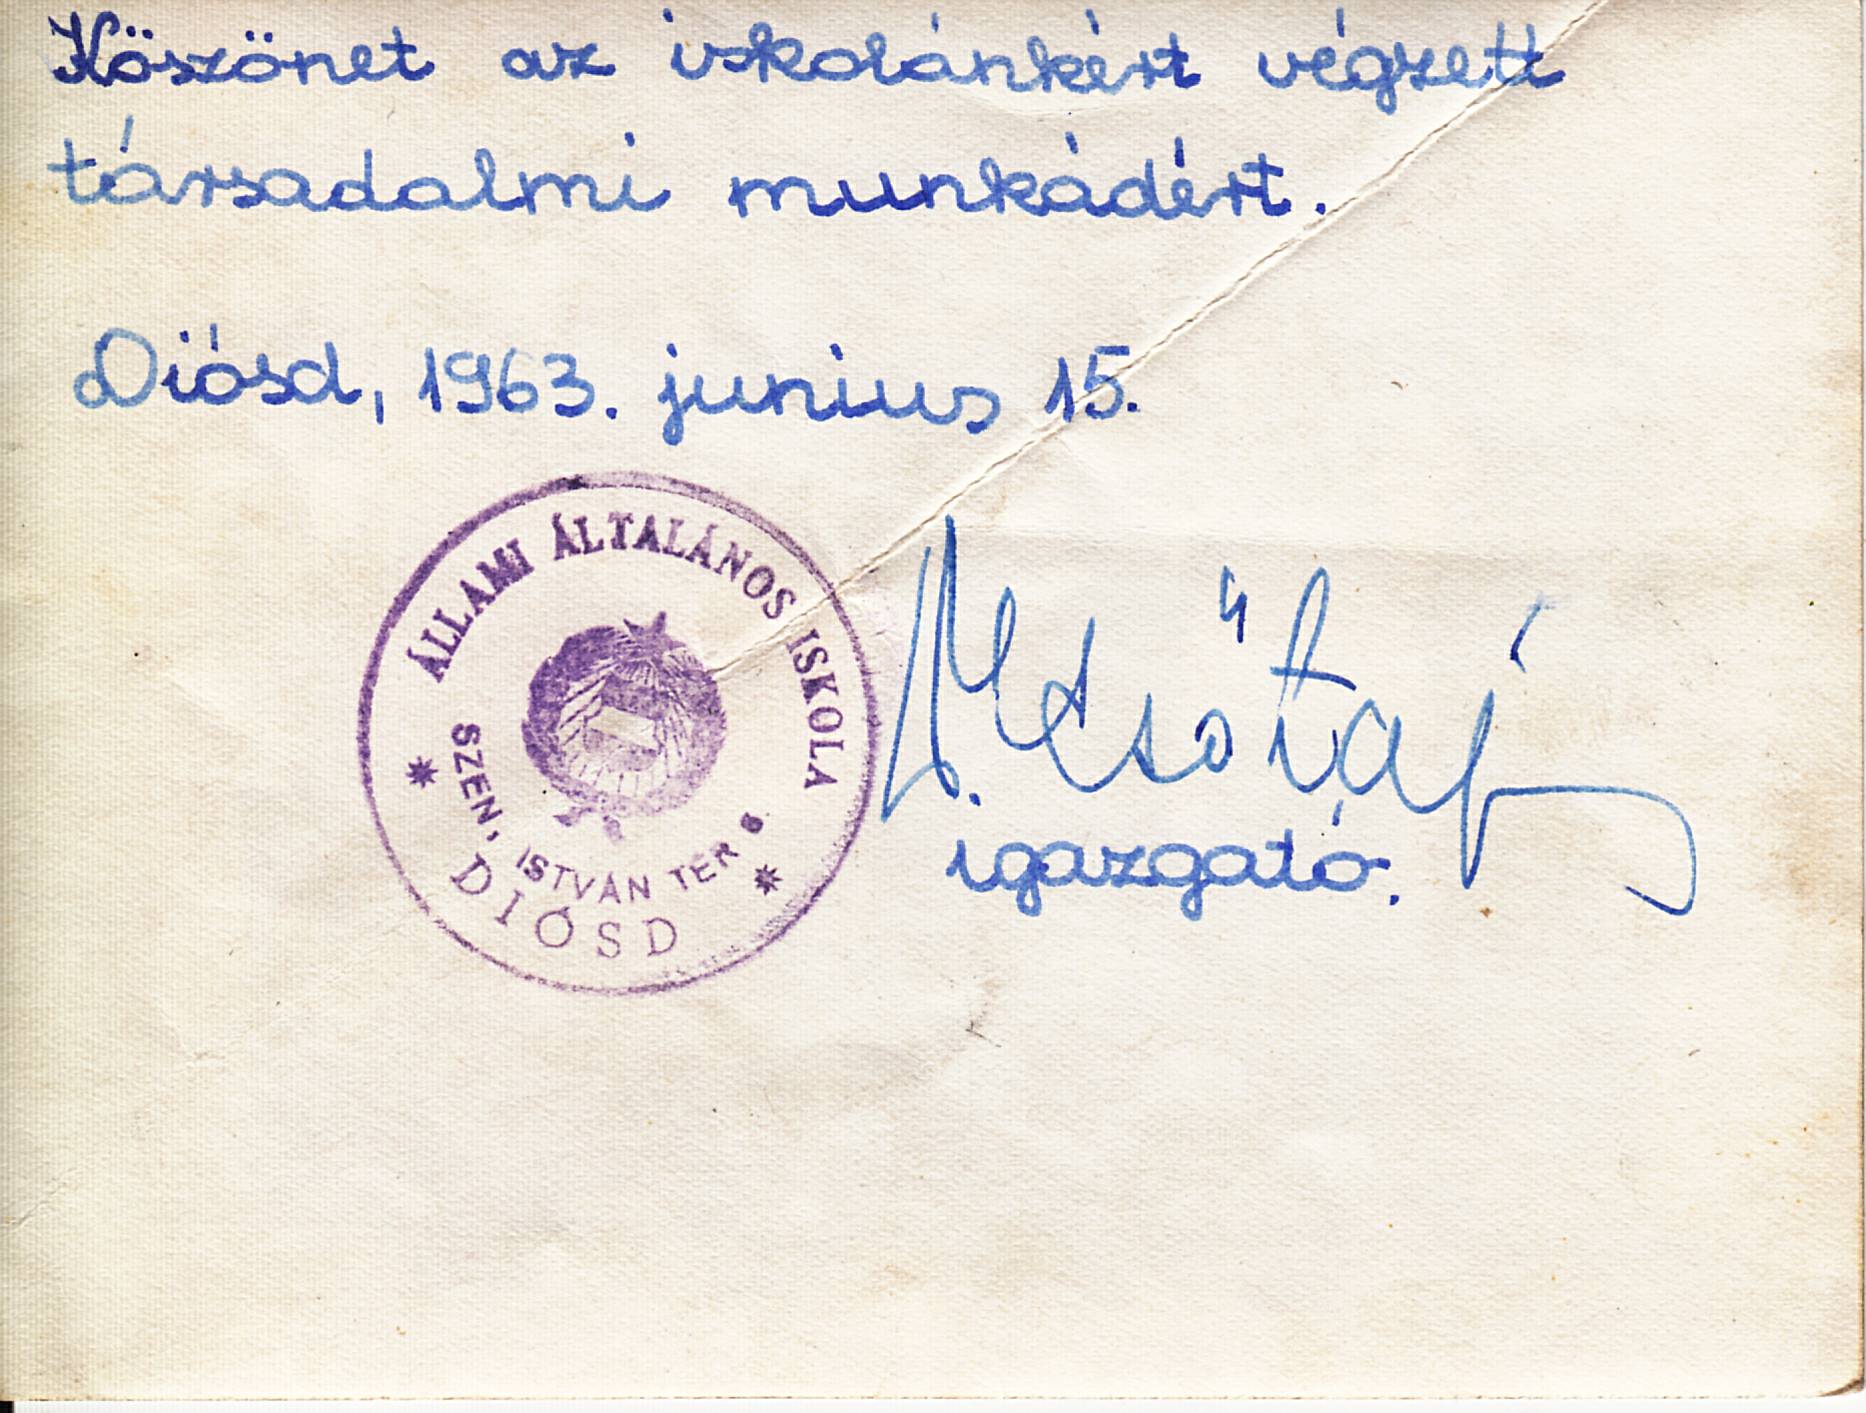 Köszönet az iskolánkért végzett
társadalmi munkádért.
Diósd, 1963. junius 15.
ÁLLAMI ÁLTALÁNOS ISKOLA
SZEN, ISTVÁN TÉR 6
DIÓSD
igazgató.